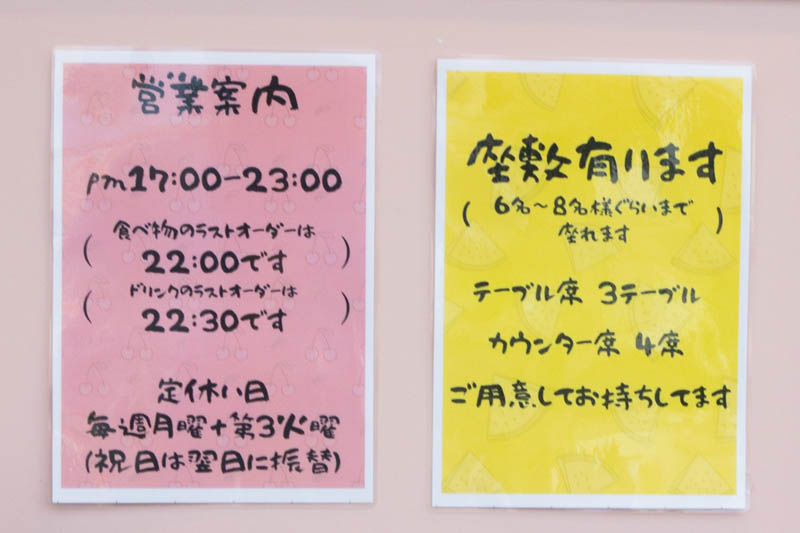 営業案内
pm17:00-23:00
(食べ物のラストオーダーは
22:00です)
(ドリンクのラストオーダーは
22:30です)
定休い日
毎週月曜+第3火曜
(祝日は翌日に振替)
座敷有ります
(6名～8名様ぐらいまで
座れます)
テーブル席 3テーブル
カウンター席 4席
ご用意してお持ちしてます